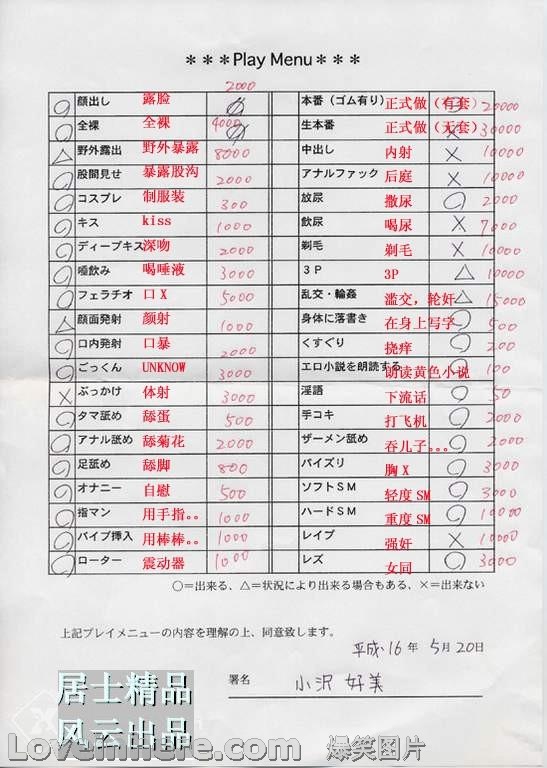 ＊＊＊Play Menu＊＊＊
2000
顔出し 露脸
全裸 全裸 4000
野外露出 野外暴露 8000
股間見せ 暴露股沟 2000
コスプレ 制服装 300
キス kiss 1000
ディープキス 深吻 2000
唾飲み 喝唾液 3000
フェラチオ 口X 5000
顔面発射 颜射 1000
口内発射 口暴 2000
ごっくん UNKNOW 3000
ぶっかけ 体射 3000
タマ舐め 舔蛋 500
アナル舐め 舔菊花 2000
足舐め 舔脚 800
オナニー 自慰 500
指マン 用手指。。 1000
バイブ挿入 用棒棒。。 1000
ローター 震动器 1000
本番（ゴム有り） 正式做（有套） 20000
生本番 正式做（无套） 30000
中出し 内射 10000
アナルファック 后庭 10000
放尿 撒尿 2000
飲尿 喝尿 7000
剃毛 剃毛 10000
３Ｐ 3P 10000
乱交・輪姦 滥交，轮奸 15000
身体に落書き 在身上写字 500
くすぐり 挠痒 200
エロ小説を朗読する 朗读黄色小说 100
淫語 下流话 50
手コキ 打飞机 2000
ザーメン舐め 吞儿子。。。 2000
パイズリ 胸X 3000
ソフトＳＭ 轻度SM 3000
ハードＳＭ 重度SM 10000
レイプ 强奸 10000
レズ 女同 3000
○＝出来る、△＝状況により出来る場合もある、×＝出来ない
上記プレイメニューの内容を理解の上、同意致します。
平成・16年 5月20日
署名 小沢 好美
居士精品
风云出品
Lovemihere.com 爆笑图片